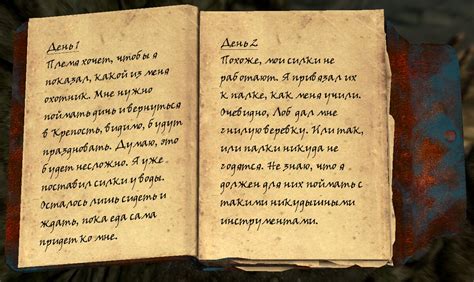 День 1
Племя хочет, чтобы я
показал, какой из меня
охотник. Мне нужно
поймать дичь и вернуться
в Крепость, видимо, будут
праздновать. Думаю, это
будет несложно. Я уже
поставил силки у воды.
Осталось лишь сидеть и
ждать, пока еда сама
придет ко мне.
День 2
Похоже, мои силки не
работают. Я привязал их
к палке, как меня учили.
Очевидно, Лоб дал мне
гнилую веревку. Или так,
или палки никуда не
годятся. Не знаю, что я
должен для них поймать с
такими никудышными
инструментами.